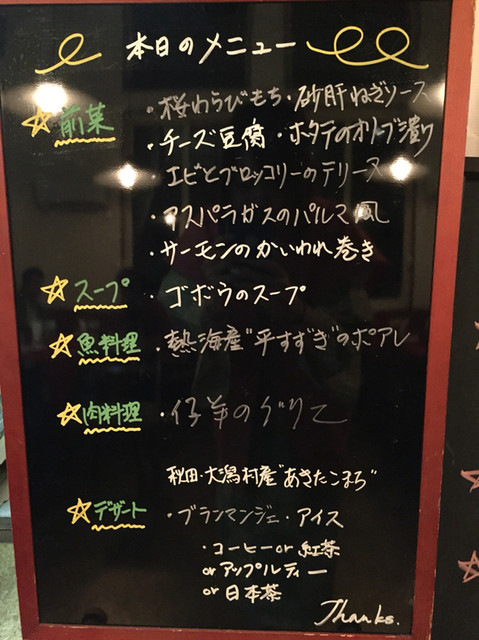 本日のメニュー
☆前菜 ・桜わらびもち・砂肝ねぎソース
・チーズ豆腐・ホタテのオリーブ漬け
・エビとブロッコリーのテリーヌ
・アスパラガスのパルマ風
・サーモンのかいわれ巻き
☆スープ ・ゴボウのスープ
☆魚料理 ・熱海産"平すずき"のポアレ
☆肉料理 ・仔羊のグリエ
秋田・大潟村産"あきたこまち"
☆デザート ・ブランマンジェ・アイス
・コーヒーor紅茶
orアップルティー
or日本茶
Thanks.